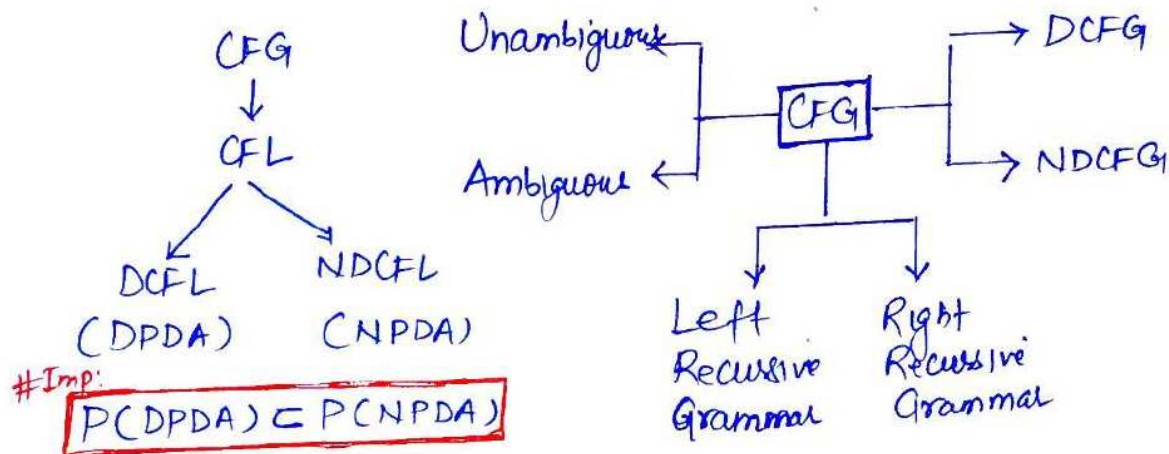 CFG
CFL
DCFL NDCFL
(DPDA) (NPDA)
#Imp:
P(DPDA) ⊂ P(NPDA)
Unambiguous
Ambiguous
CFG
DCFG
NDCFG
Left
Recursive
Grammar
Right
Recussive
Grammar